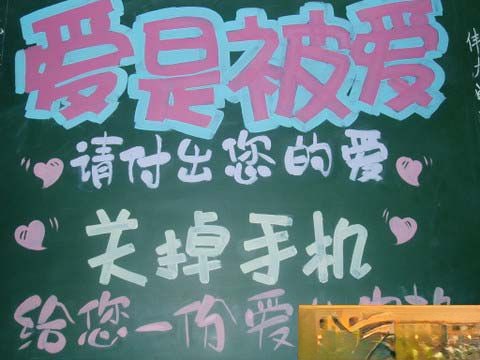 爱是被爱
请付出您的爱
关掉手机
给您一份爱
伟